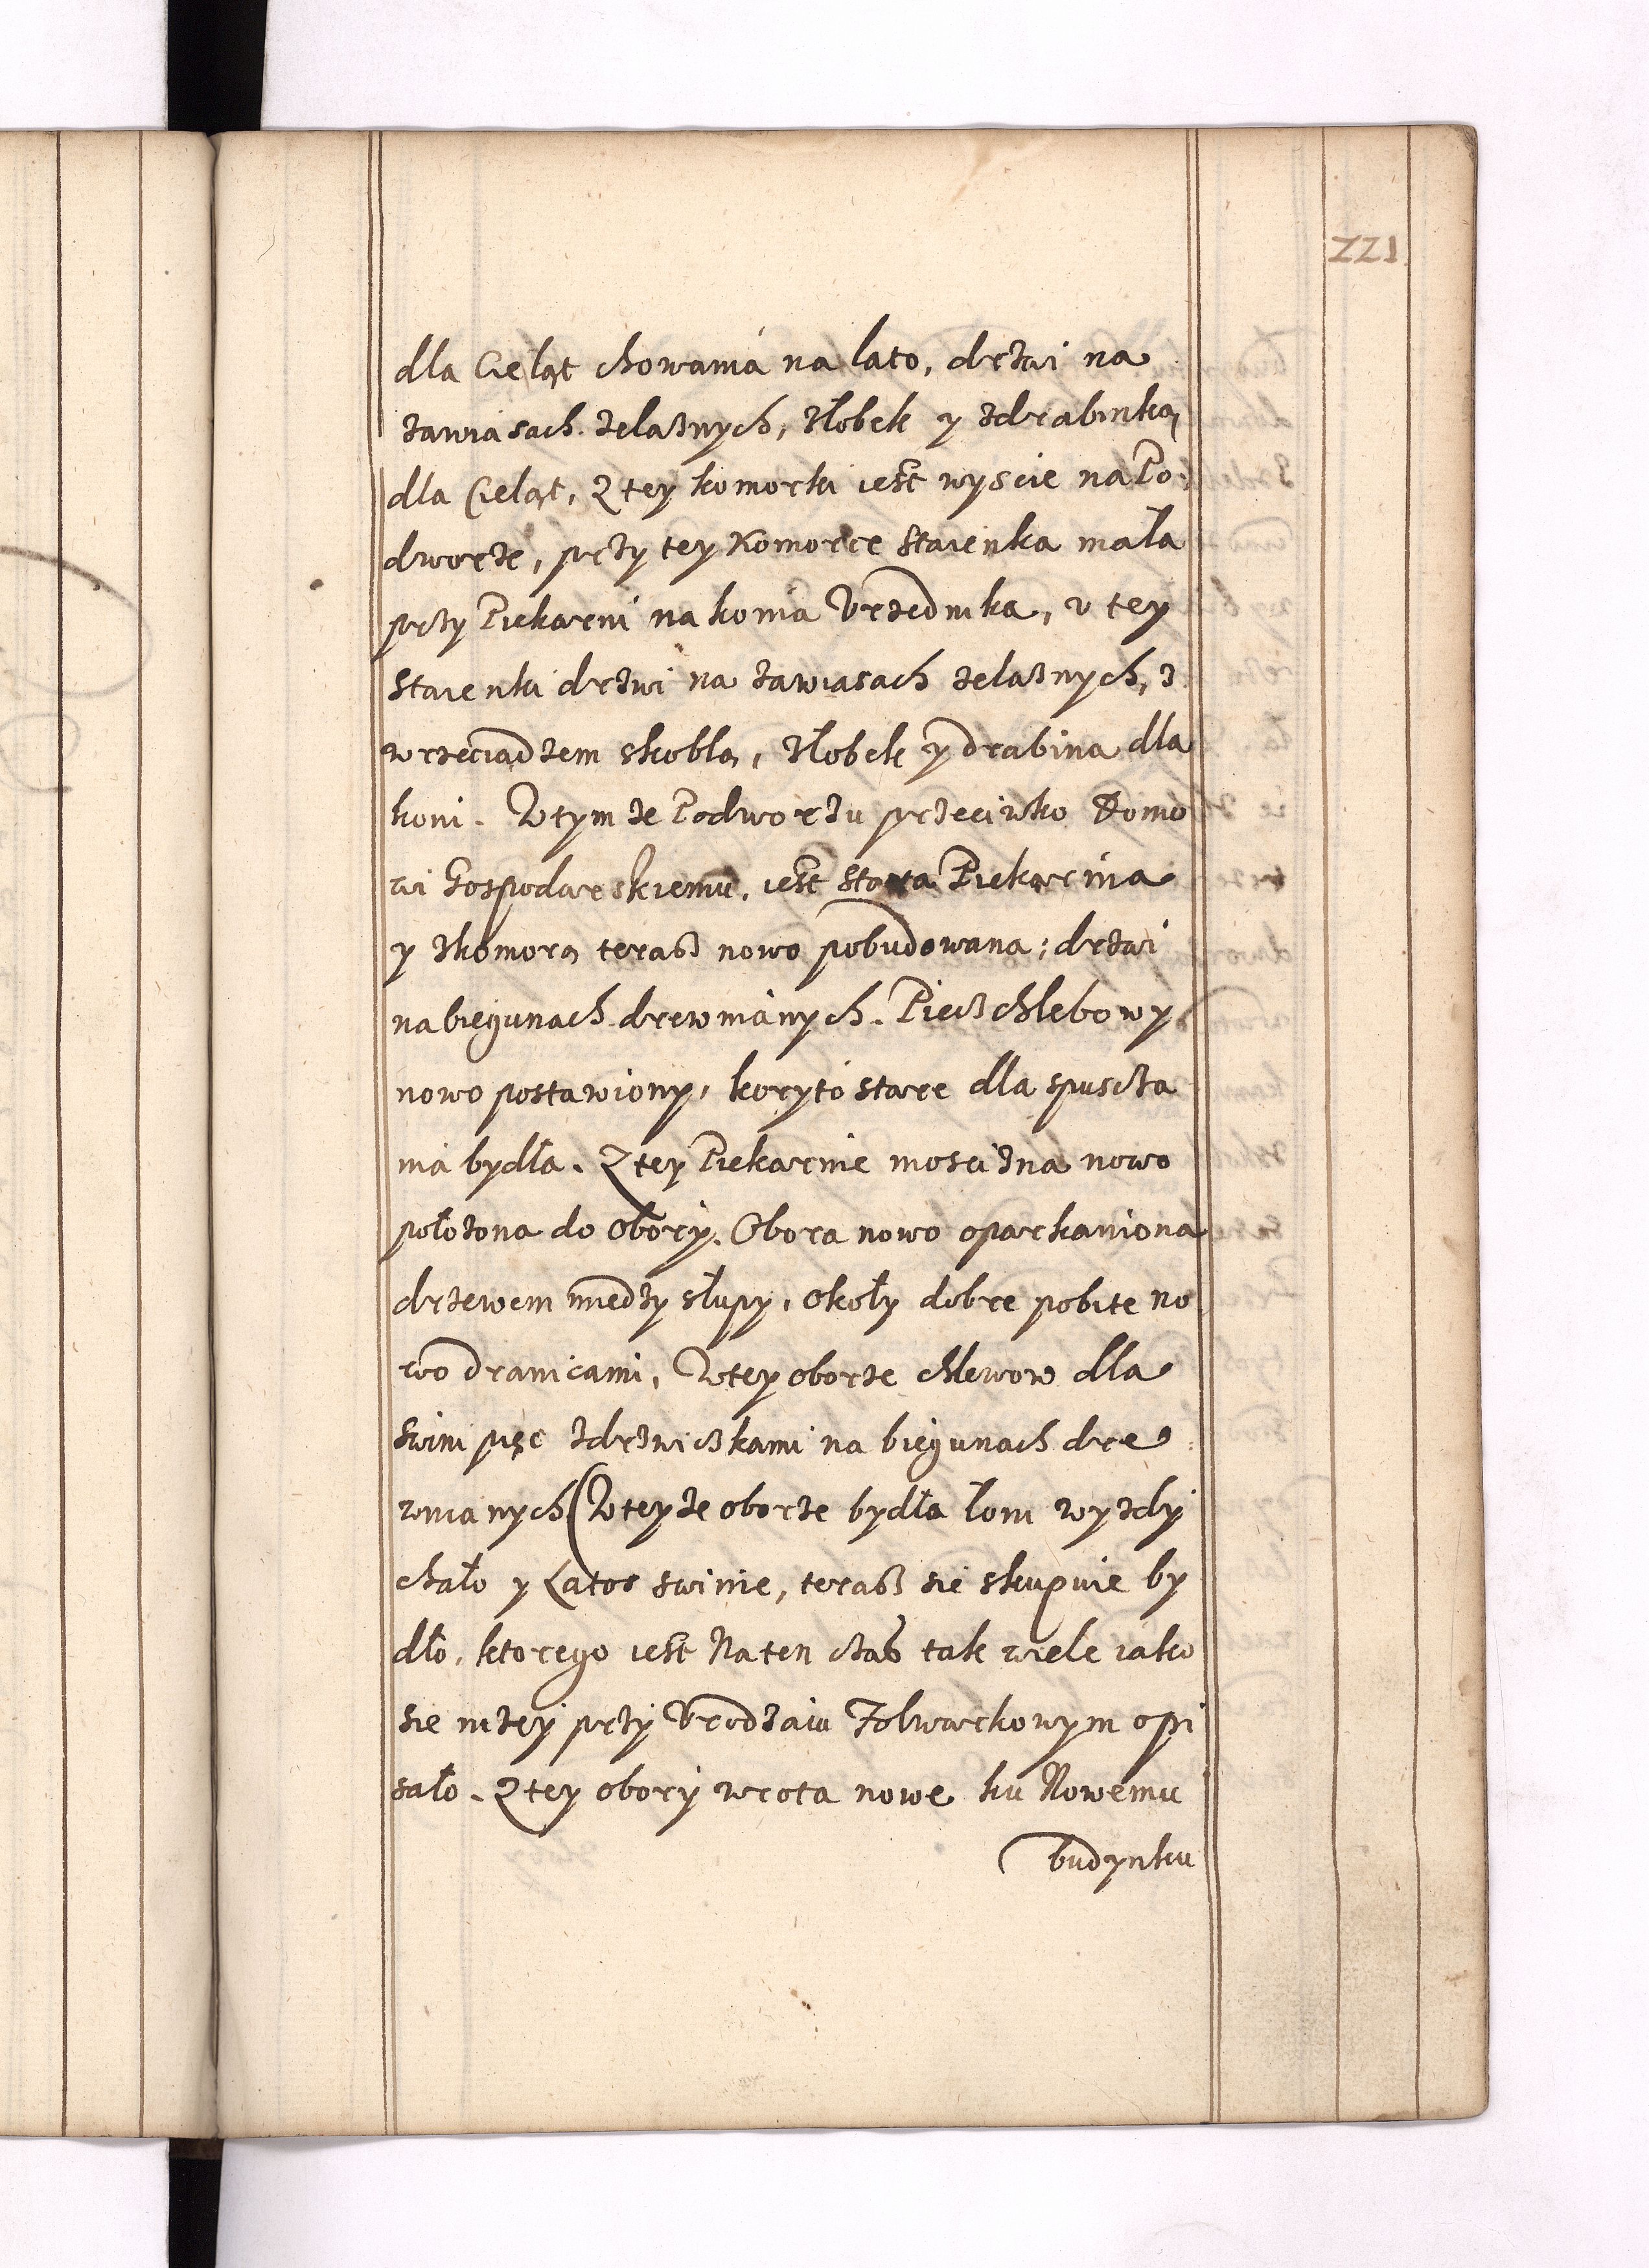 221
dla Cieląt chowania na lato, drzwi na
zawiasach zelaznych, złobek y zdrabinką
dla Cieląt, Ztey komorki iest wyscie na Po:
dworze, przy tey Komorce Staienka mała
przy Piekarni na konia Vrzednika, v tey
Staienki drzwi na zawiasach zelaznych, z
wrzeciadzem skoblą, złobek y drabina dla
koni. Wtymze Podworzu przeciwko Domo
wi Gospodarskiemu, iest Stara Piekarnia
y zkomorą terasz nowo pobudowana; drzwi
na biegunach drewnianych. Piecz chlebowy
nowo postawiony, koryto stare dla spuscza
nia bydła. Ztey Piekarnie moscizna nowo
połozona do Obory. Obora nowo oparkaniona
drzewem miedzy słupy, okoły dobre pobite no
wo dranicami, Wtey oborze chlewow dla
swini pięc zdrzwiczkami na biegunach dre
wnianych (Wteyze oborze bydła łoni wyzdy
chało y Latos swinie, terasz sie skupuie by
dło, ktorego iest Na ten czas tak wiele iako
sie nizey przy Vrodzaiu Folwarkowym opi
sało. Ztey obory wrota nowe ku Nowemu
budynku